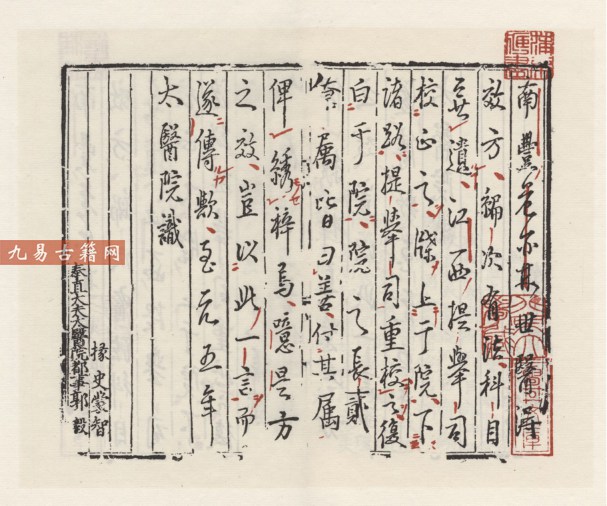 南豐危亦林世醫得
效方編次有法科目
無遺江西提舉司
校正之牒上于院下
諸路提舉司重校之復
白于院院之長貳
僉屬皆曰善付其屬
俾綉梓焉噫是方
之效豈以此一言而
遂傳歟至元五年
太醫院識
掾史蒙智
奉直大夫太醫院都事郭毅
九易古籍网